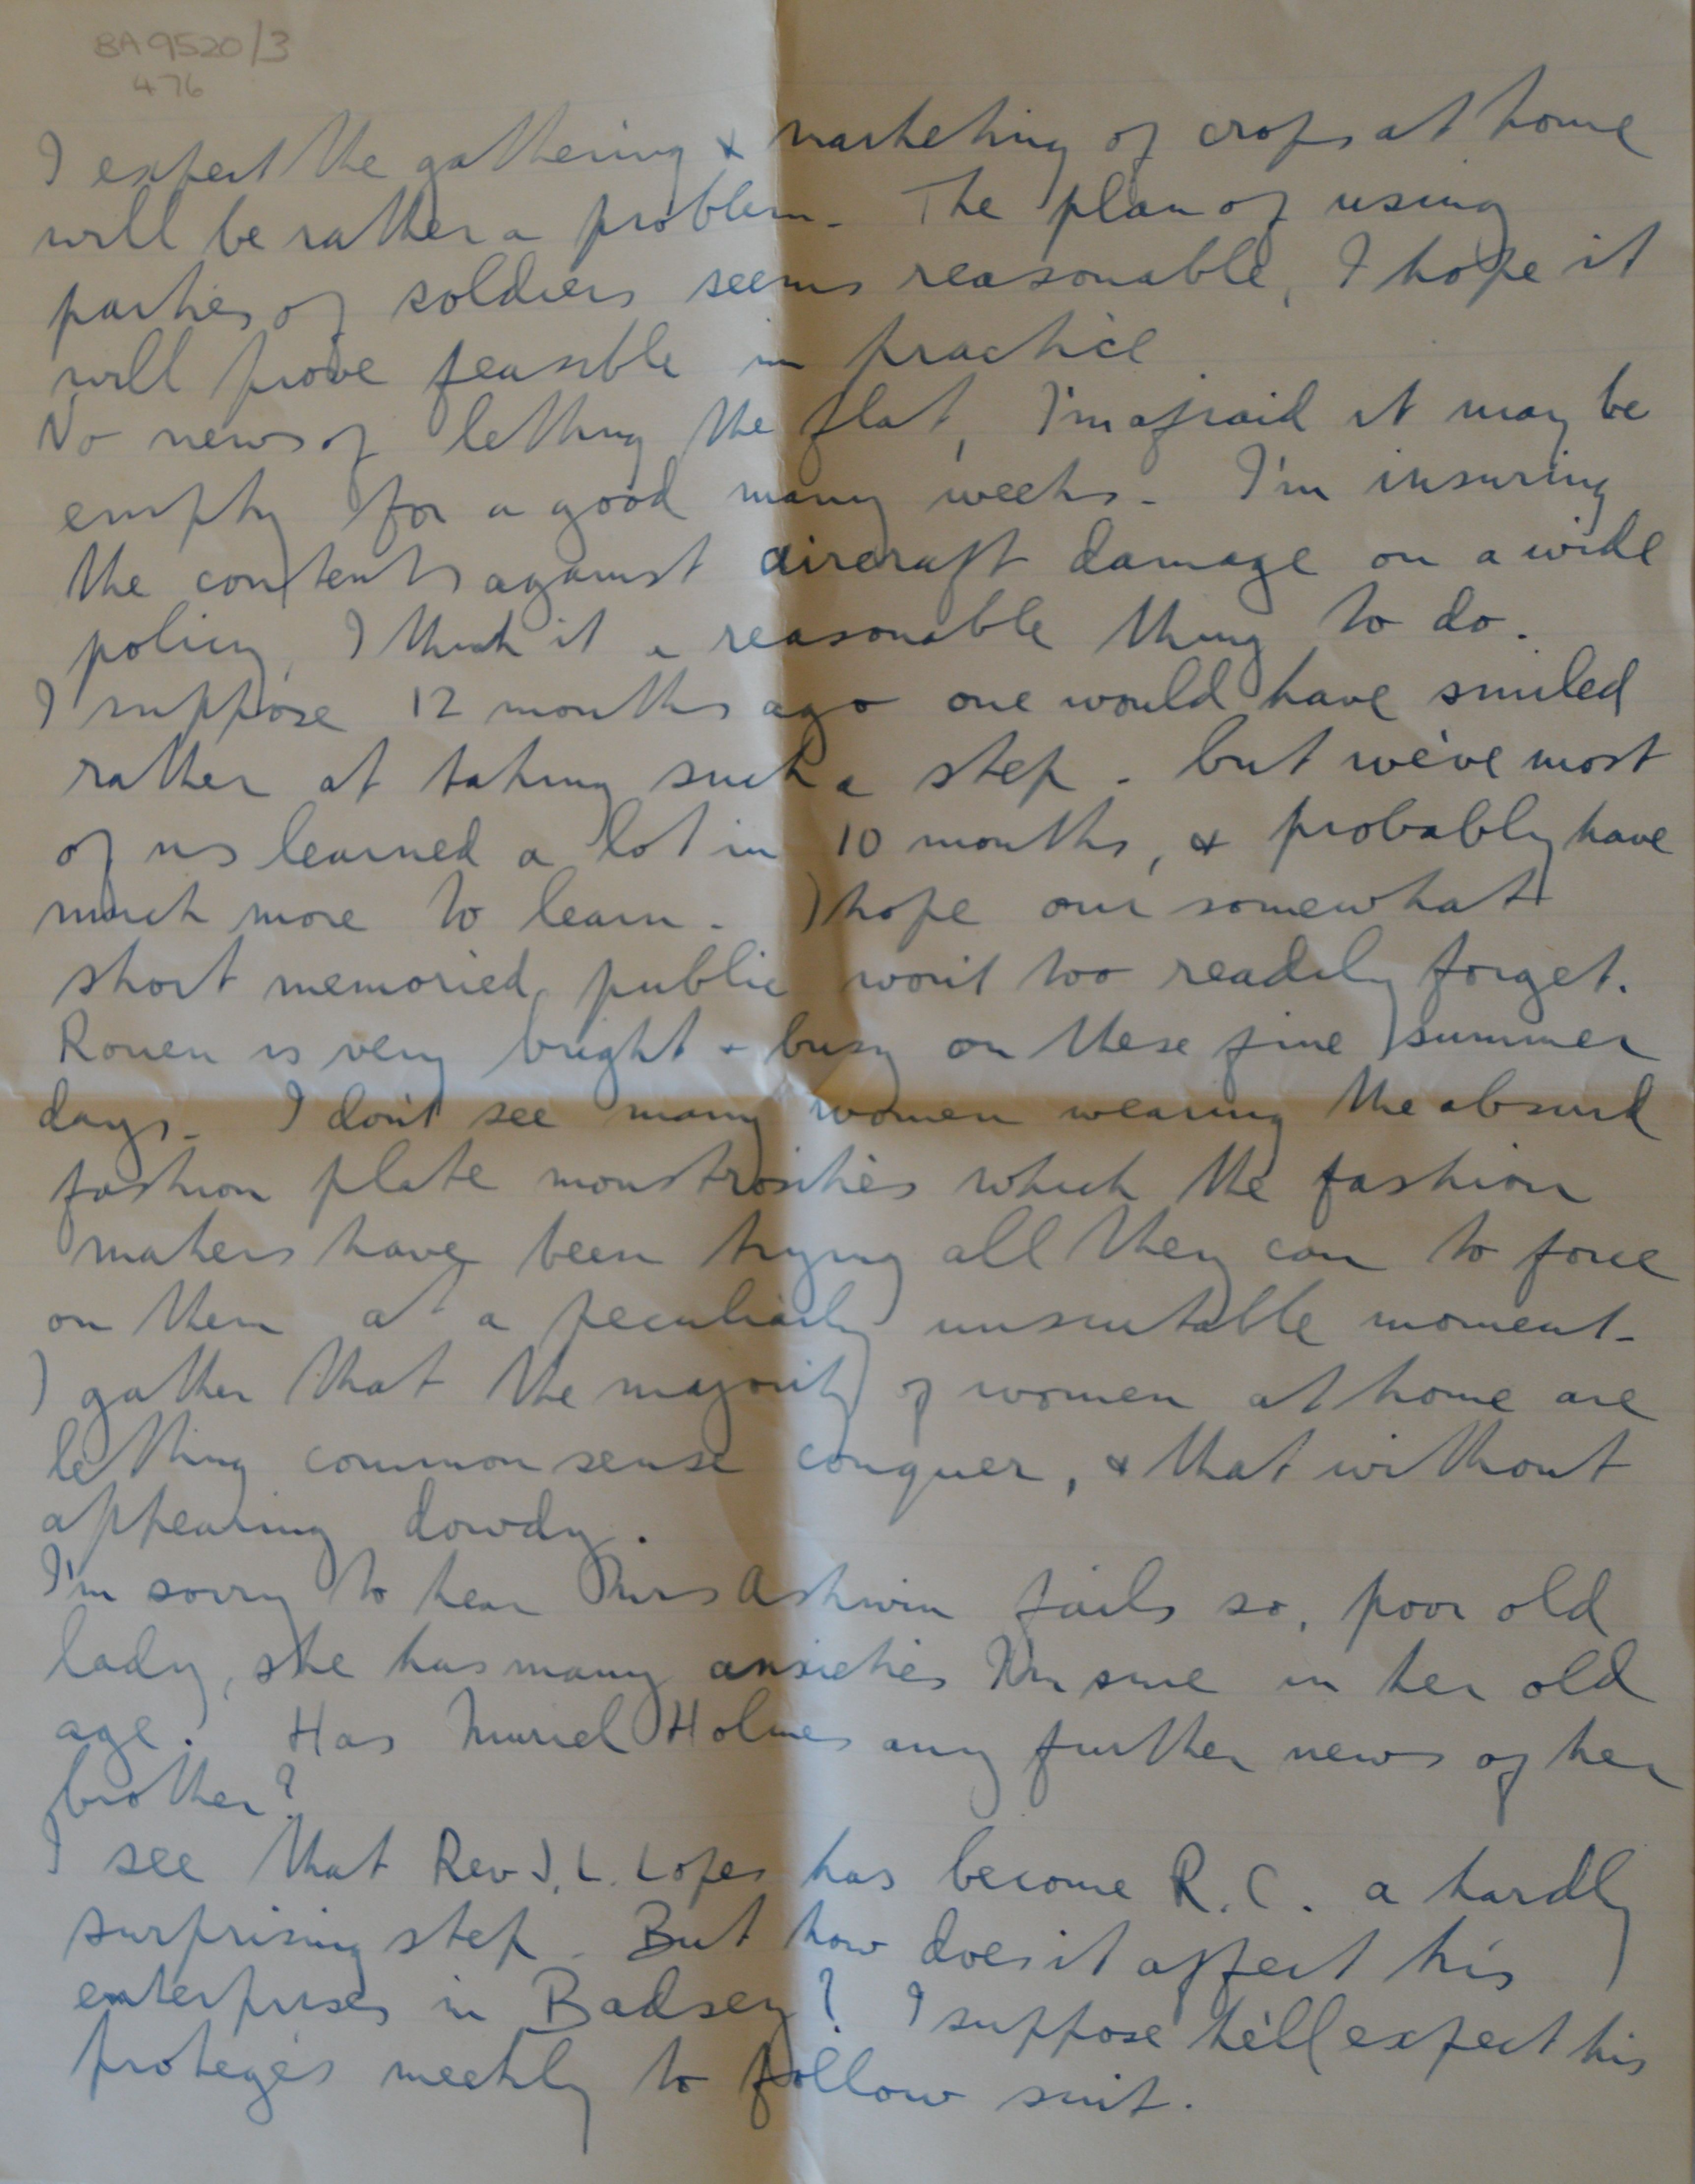 BA 9520/3
476
I expect the gathering & marketing of crops at home
will be rather a problem. The plan of using
parties of soldiers seems reasonable, I hope it
will prove feasible in practice
No news of letting the flat, I'm afraid it may be
empty for a good many weeks. I'm insuring
the contents against aircraft damage on a wide
policy, I think it a reasonable thing to do.
I suppose 12 months ago one would have smiled
rather at taking such a step. but we've most
of us learned a lot in 10 months, & probably have
much more to learn. I hope our somewhat
short memoried public won't too readily forget.
Rouen is very bright & busy on these fine summer
days. I don't see many women wearing the absurd
fashion plate monstrosities which the fashion
makers have been trying all they can to force
on them at a peculiarly unsuitable moment.
I gather that the majority of women at home are
letting common sense conquer, & that without
appearing dowdy.
I'm sorry to hear Mrs Ashwin fails so, poor old
lady, she has many anxieties I'm sure in her old
age. Has Muriel Holmes any further news of her
brother?
I see that Rev J. L. Lopes has become R.C. a hardly
surprising step. But how does it affect his
enterprises in Badsey? I suppose he'll expect his
protegés meekly to follow suit.